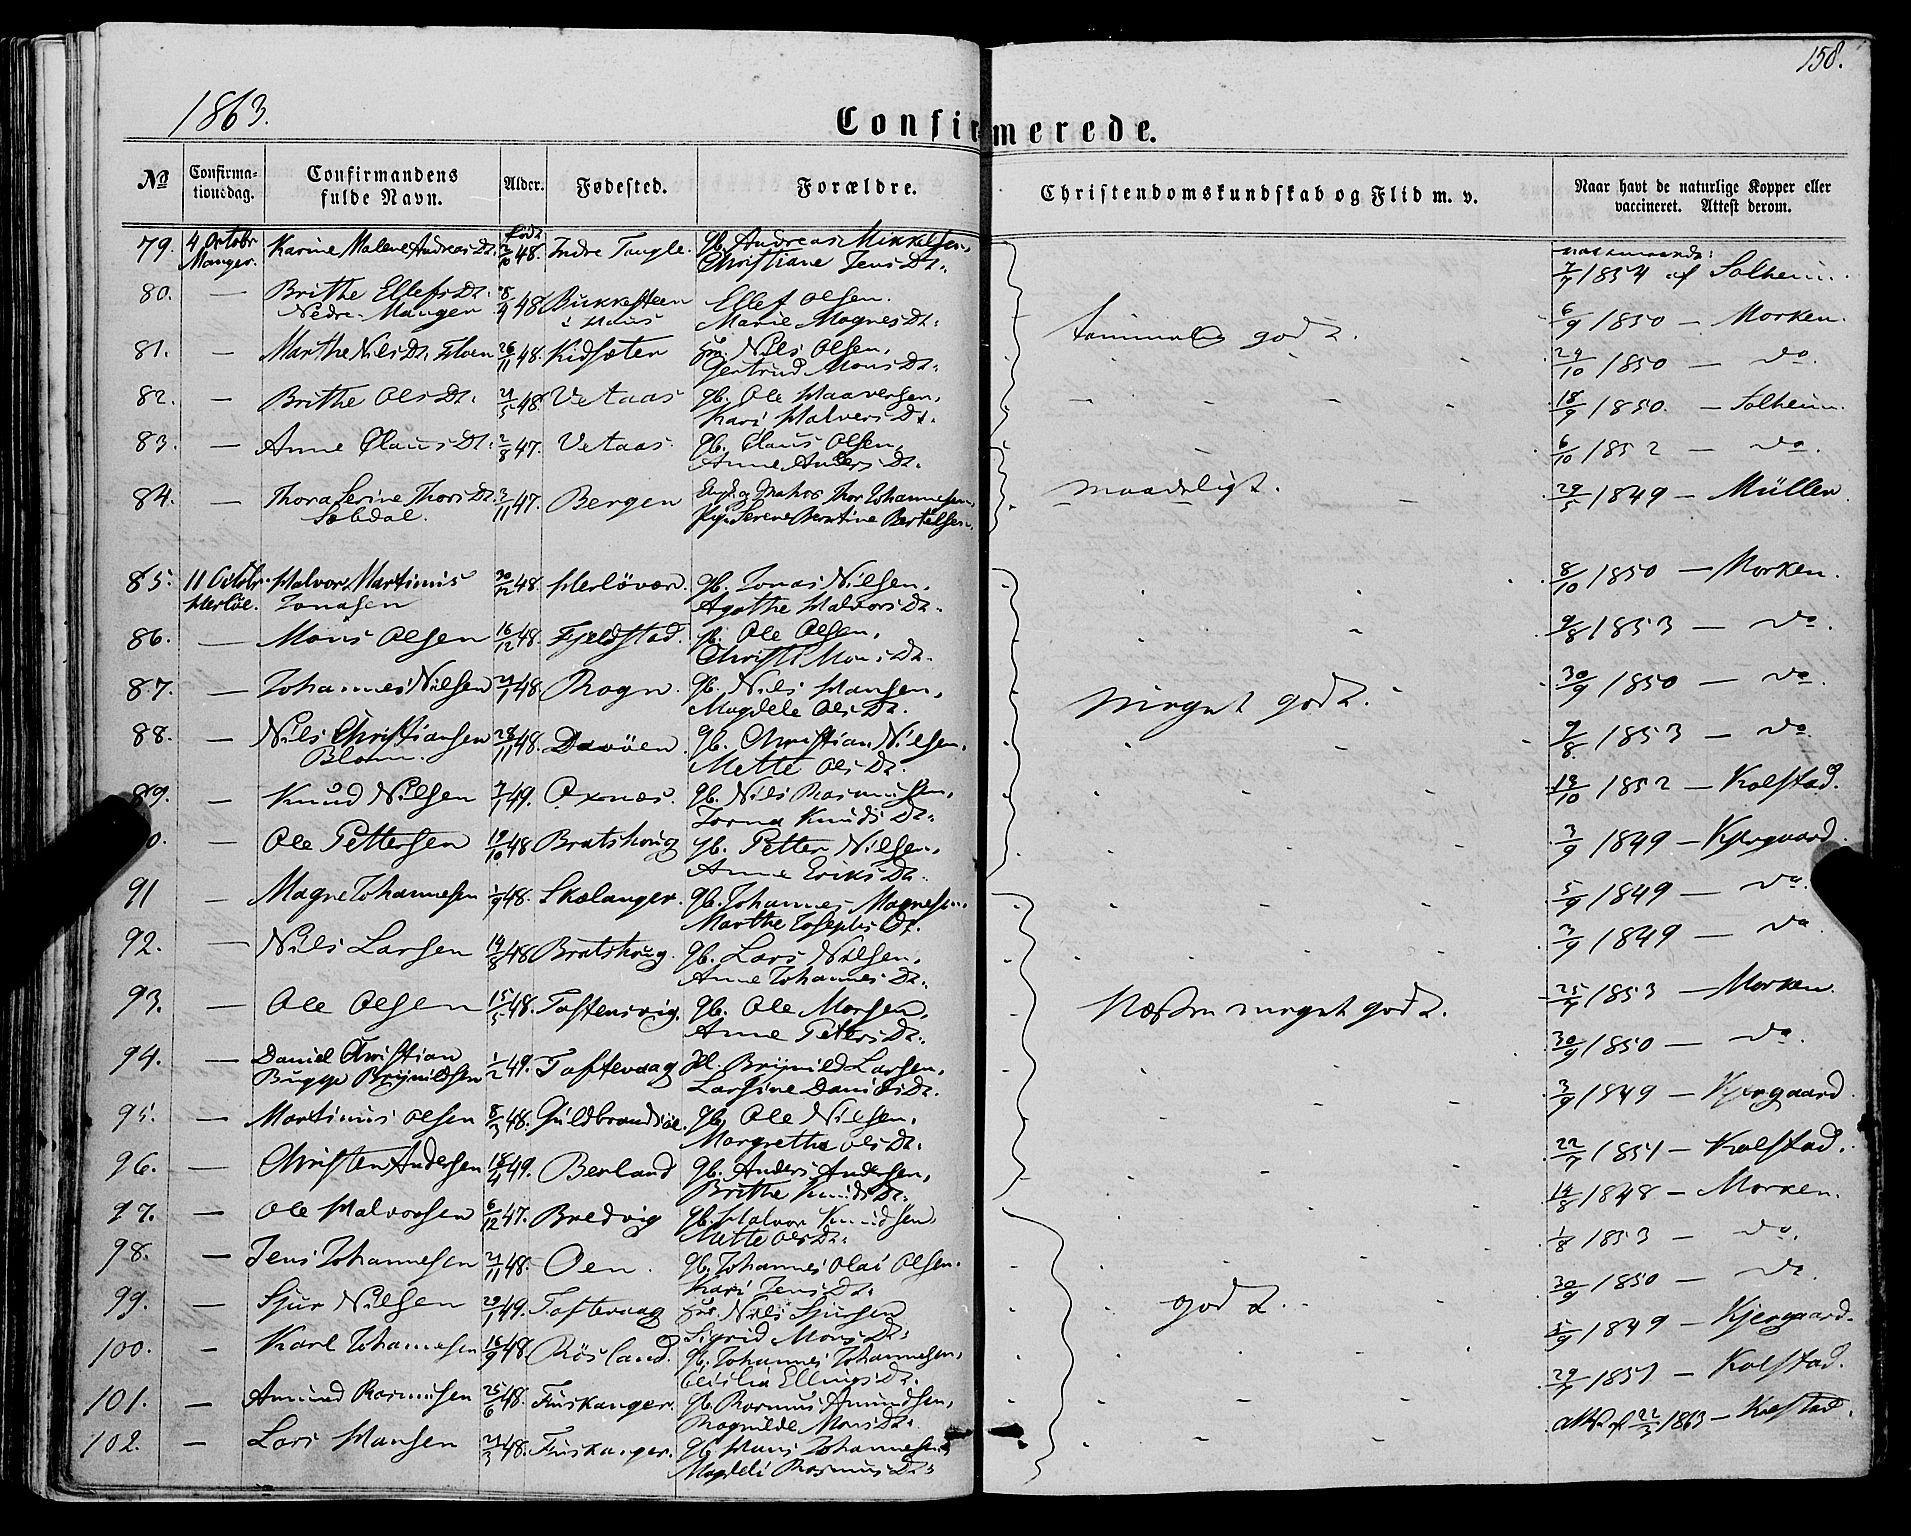 158.
1863.
Confirmerede.
No Confirmationsdag. Confirmandens fulde Navn. Alder. Fødested. Forældre. Christendomskundskab og Flid m. v. Naar havt de naturlige Kopper eller vaccineret. Attest derom.
79. 4 Octobr Karine Malene Andreas Dt. født 48. Indre Tangle. Gb. Andreas Mikkelsen,
Manger. Christiane Jens Dt. 7/7 1854 af Solheim.
80. — Brithe Ellefs Dt. 28/4 48 Bukkesteen Ellef Olsen.
Nedre-Manger i Huus Marie Magnes Dt. temmelig godt. 6/9 1850 — Morken.
81. — Marthe Nils Dt. Floen 26/11 48. Kidsæter Huus. Nils Olsen,
Gertrud Mons Dt. 29/10 1850 — do.
82. — Brithe Ols Dt. 21/5 48. Vetaas Gb. Ole Haavorsen,
Kari Halvors Dt. 18/9 1850. — Solheim.
83. — Anne Claus Dt. 2/8 47. Vetaas. Gb. Claus Olsen,
Anne Anders Dt. 6/10 1852 — do.
84. — Thora Serine Thors Dt. 3/11 47. Bergen Thor Johannesen,
Sæbdal. Pige Serene Berntine Bertelsen. maadeligt. 29/5 1849 — Müller.
85. 11 Octobr. Halvor Martinus 30/12 48. Herløvær. Gb. Jonas Nilsen,
Herløe. Jonasen Agathe Halvors Dt. 8/10 1850 — Morken.
86. — Mons Olsen 16/12 48. Fjeldstad. Gb. Ole Olsen,
Christi Mons Dt. 9/8 1853 — do.
87. — Johannes Nilsen 21/1 48. Rogn. Gb. Nils Hansen,
Magdele Ols Dt. meget godt. 30/9 1850 — do.
88. — Nils Christiansen 28/11 48. Davøen. Gb. Christian Nilsen,
Blom. Mette Ols Dt. 9/8 1853 — do.
89. — Knud Nilsen 7/1 49. Oxnæs. Gb. Nils Rasmusen,
Jorna Knuds Dt. 13/10 1852 — Kolstad.
90. — Ole Pettersen 19/10 48 Bratshoug Gb. Petter Nilsen,
Anne Eriks Dt. 3/9 1849 — Kjergaard.
91 — Magne Johannesen 1/9 48. Skælanger. Gb. Johannes Magnesen,
Marthe Josephs Dt. 5/9 1849 — do.
92. — Nils Larsen 14/8 48 Bratshoug. Gb. Lars Nilsen,
Anne Johannes Dt. 3/9 1849 — do
93. — Ole Olsen 15/5 48. Toftenvig. Gb. Ole Monsen,
Anne Peters Dt. Næsten meget godt. 25/7 1853 — Morken.
94. — Daniel Christian 1/2 49. Toftevaag Hl. Brynild Larsen,
Bugge Brynildsen Larsine Daniels Dt. 30/9 1850 — do.
95. — Martinus Olsen 8/3 48. Guldbrandsøe. Gb. Ole Nilsen,
Margrethe Ols Dt. 3/9 1849 — Kjergaard.
96. — Christen Andersen 18/4 49. Berland Gb. Anders Andersen,
Brithe Knuds Dt. 22/7 1851 — Kolstad.
97. — Ole Halvorsen 6/12 47. Bredvig Gb. Halvor Knudsen,
Mette Ols Dt. 14/8 1848 — Morken.
98. — Jens Johannesen 21/11 48. Oen. Gb. Johannes Olai Olsen.
Kari Jens Dt. 1/8 1853 — do.
99. — Sjur Nilsen 29/1 49. Toftevaag Huus. Nils Sjursen
Sigrid Mons Dt. godt. 30/9 1850 — do.
100. — Karl Johannesen 16/9 48. Røsland. Gb. Johannes Johannesen,
Cecilia Ellings Dt. 5/9 1849 — Kjergaard.
101. — Amund Rasmusen 25/6 48. Fuskanger. Gb. Rasmus Amundsen,
Ragnilde Mons Dt. 29/7 1851 — Kolstad.
102. — Lars Hansen 21/3 48. Fuskanger. Gb. Hans Johannesen
Magdeli Rasmus Dt. Attest af 22/3 1863 — Kolstad.